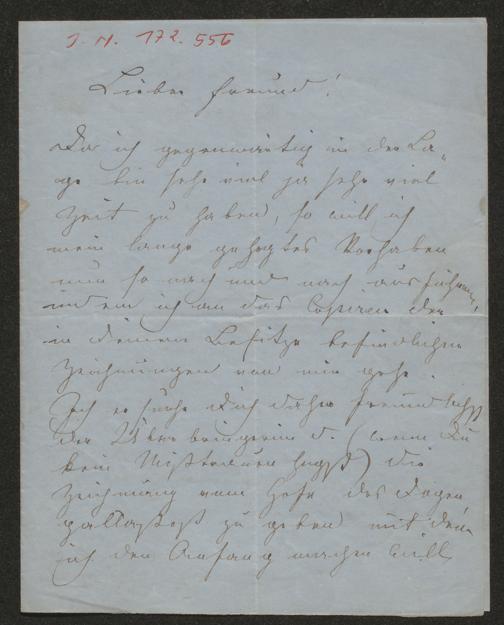 J. N. 172.556
Lieber Freund!
Da ich gegenwärtig in der La-
ge bin sehr viel ja sehr viel
Zeit zu haben, so will ich
mein lange gehegtes Vorhaben
nun so nach und nach ausführen,
indem ich an das Copiren der
in deinem Besitze befindlichen
Zeichnungen von mir gehe.
Ich ersuche dich daher freundlichst
der Überbringerin d. (wenn Du
kein Mißtrauen hegst) die
Zeichnung vom Hofe des Dogen
pallastes zu geben mit dem
ich den Anfang machen will